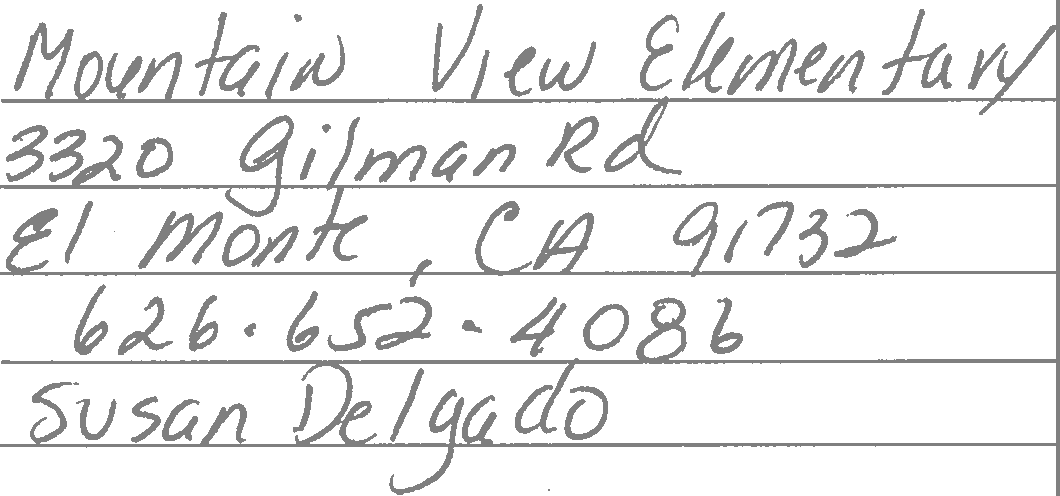 Mountain View Elementary
3320 Gilman Rd
El Monte, CA 91732
626.652-4086
Susan Delgado